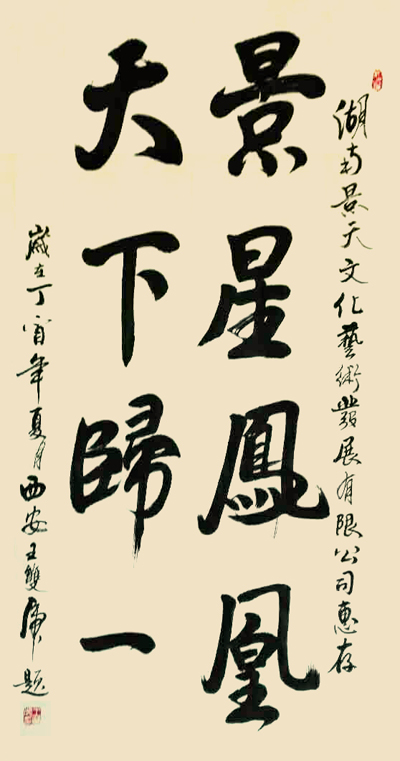 湖南景天文化藝術發展有限公司惠存
景星鳳凰
天下歸一
歲在丁酉年夏月西安王雙虎題